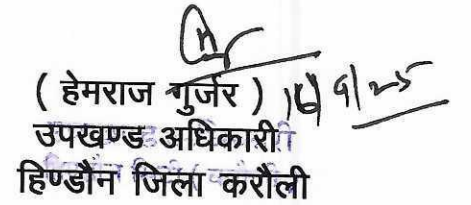 ( हेमराज गुर्जर ) 16/9/25
उपखण्ड अधिकारी
हिण्डौन जिला करौली